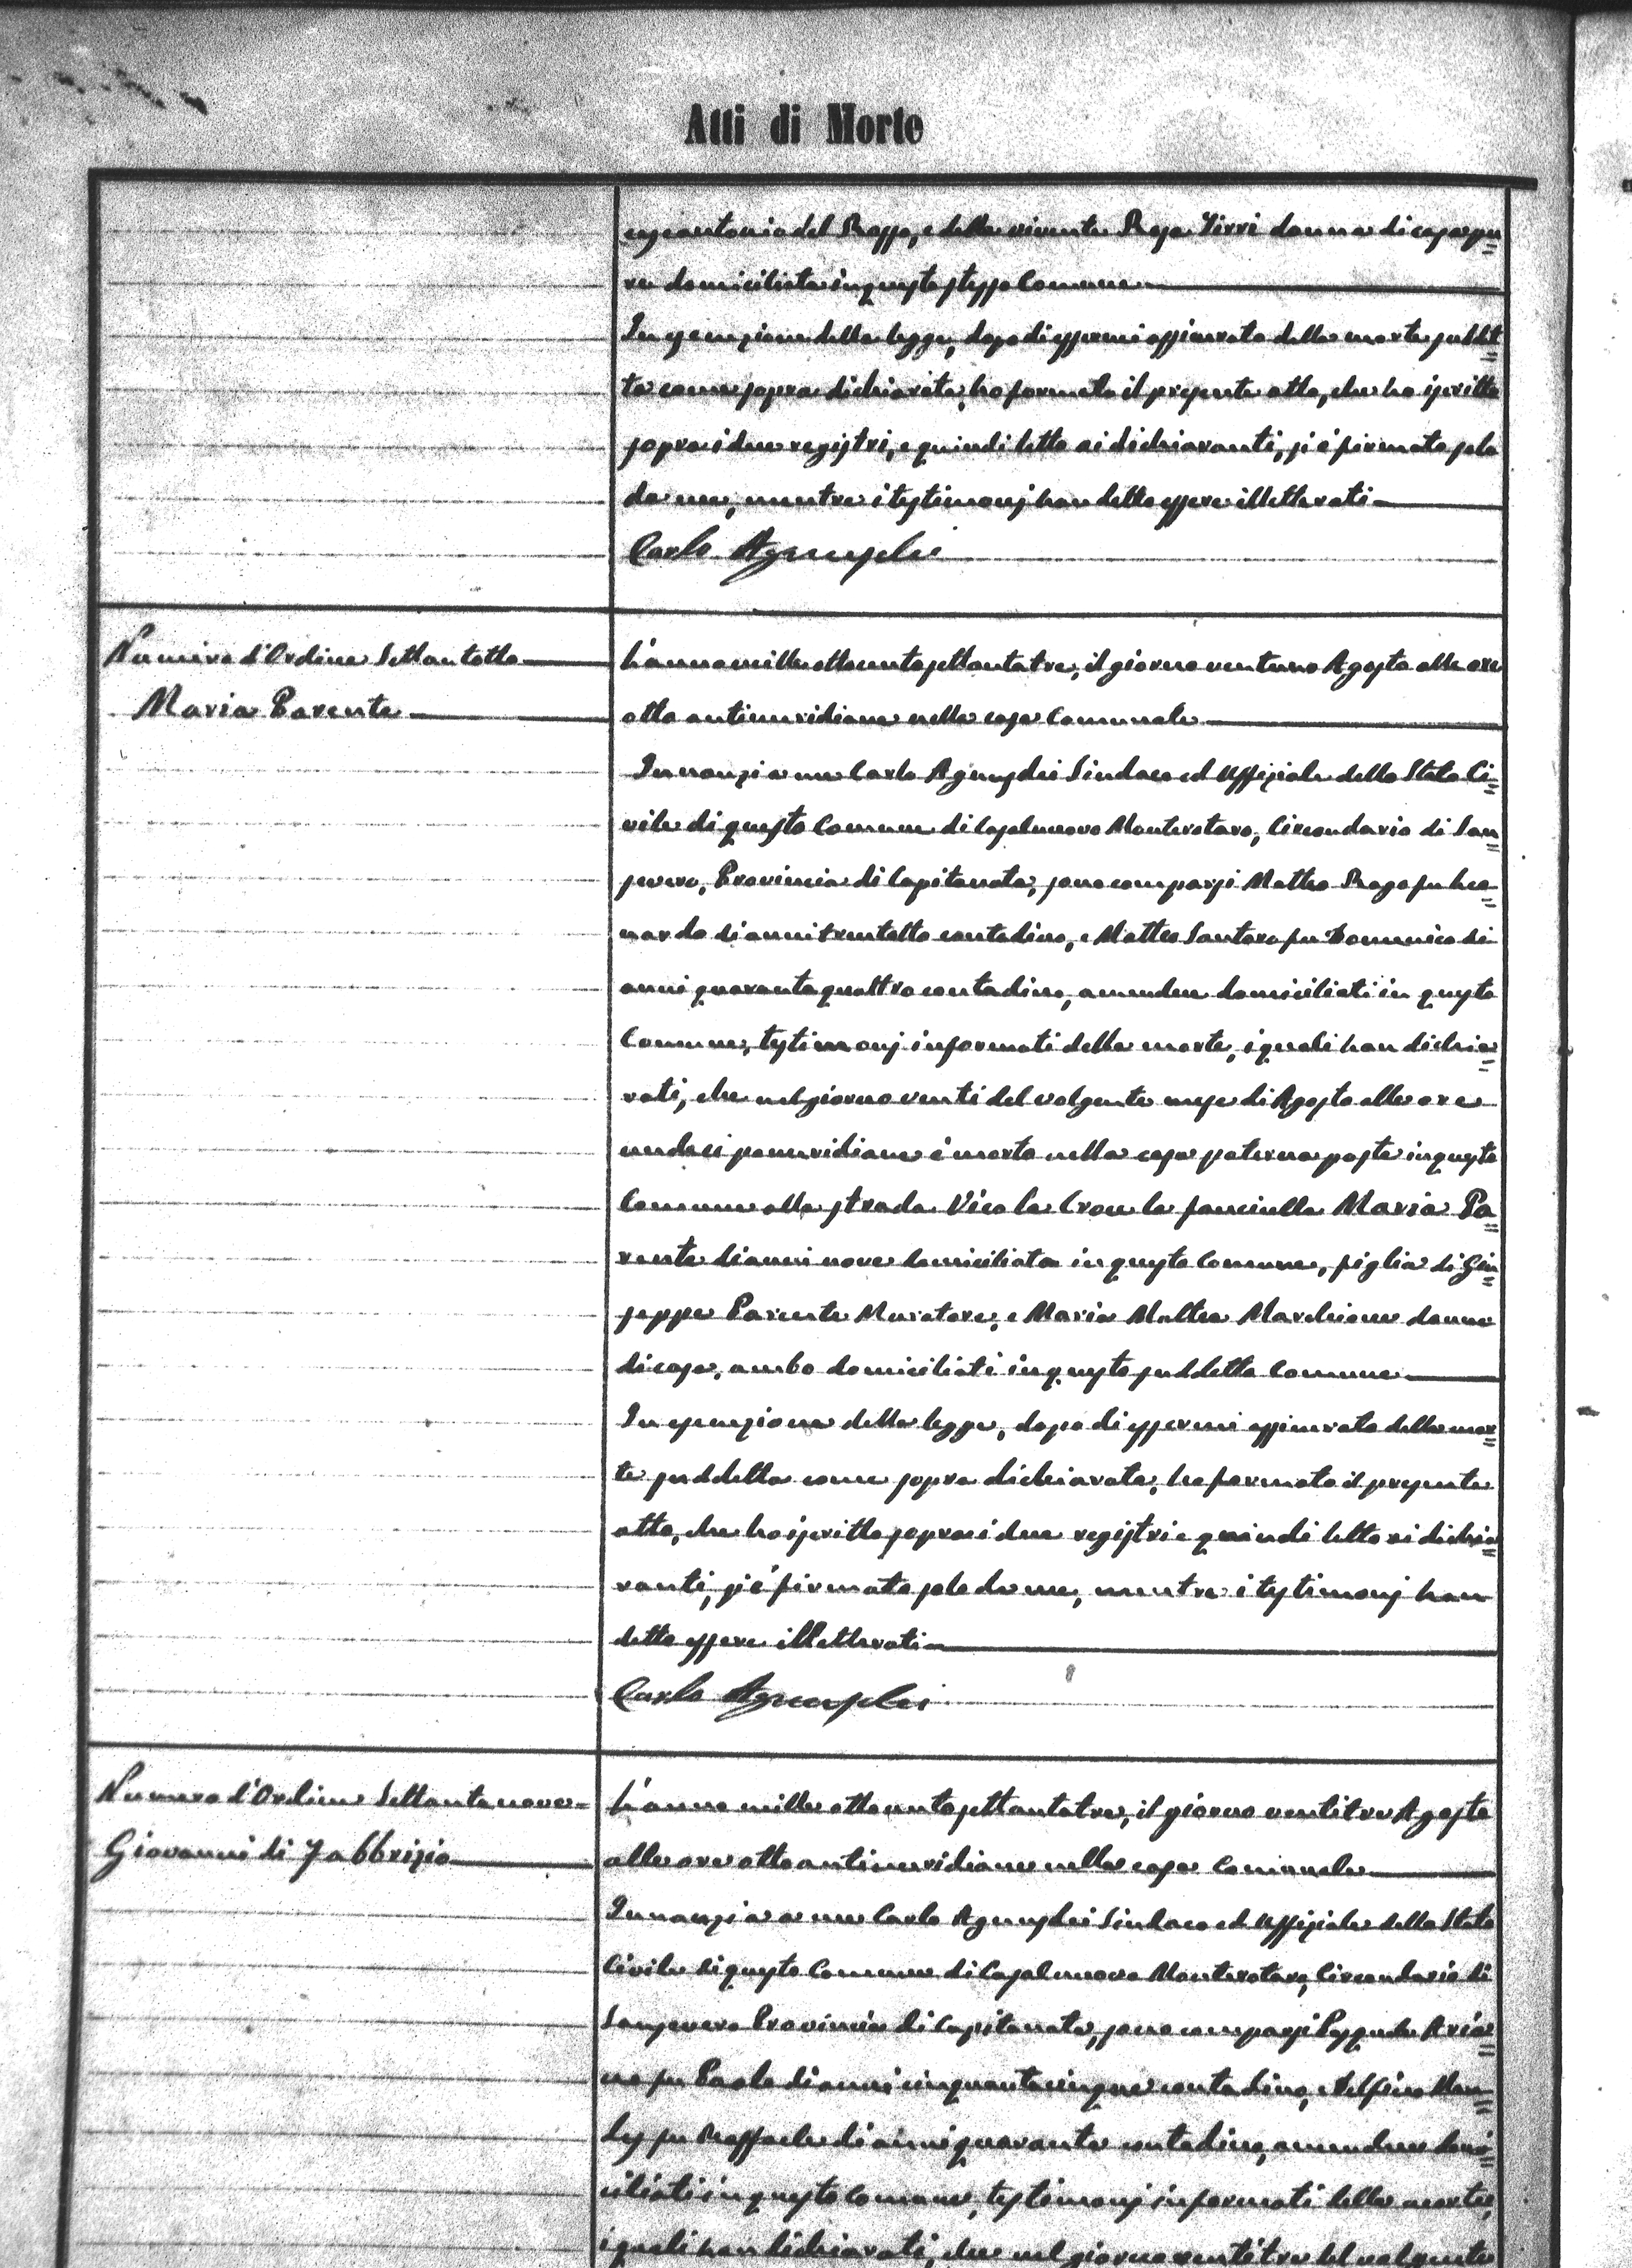 Atti di Morte
del Basso, e della vivente Rosa Virri donna di casa pu=
re domiciliata in questo stesso Comune
In esecuzione della legge, dopo di essermi assicurato della morte suddet=
ta come sopra dichiarata, ho formato il presente atto, che ho iscritto
sopra i due registri, e quindi letto ai dichiaranti, si è firmato solo
da me, mentre i testimonj han detto essere illetterati
Carlo
Numero d'Ordine Settantotto
Maria Parente
L'anno mille ottocento settantatre, il giorno ventuno Agosto alle ore
otto antimeridiane nella casa Comunale
Innanzi a me Carlo Sindaco ed Uffiziale dello Stato Ci=
vile di questo Comune di Casalnuovo Monterotaro, Circondario di San=
severo, Provincia di Capitanata, sono comparsi Matteo fu Leo=
nardo di anni trentotto contadino, e Matteo Santoro fu Domenico di
anni quarantaquattro contadino, amendue domiciliati in questo
Comune, testimonj informati della morte, i quali han dichia=
rati, che nel giorno venti del volgente mese di Agosto alle ore
undeci pomeridiane è morta nella casa paterna posta in questo
Comune alla strada Vico la Croce la fanciulla Maria Pa=
rente di anni nove domiciliata in questo Comune, figlia di Giu=
seppe Parente Muratore, e Maria Mattea Marchione donna
di casa, ambo domiciliati in questo suddetto Comune
In esecuzione della legge, dopo di essermi assicurato della mor=
te suddetta come sopra dichiarata, ho formato il presente
atto, che ho iscritto sopra i due registri e quindi letto ai dichia=
ranti, si è firmato solo da me, mentre i testimonj han
detto essere illetterati
Carlo
Numero d'Ordine Settantanove
Giovanni di Fabbrizio
L'anno mille ottocento settantatre, il giorno ventitre Agosto
alle ore otto antimeridiane nella casa Comunale
Innanzi a me Carlo Sindaco ed Uffiziale dello Stato
Civile di questo Comune di Casalnuovo Monterotaro, Circondario di
Sansevero Provincia di Capitanata, sono comparsi
fu Paolo di anni cinquantacinque contadino, e
fu Raffaele di anni quaranta contadino, amendue domi=
ciliati in questo Comune, testimonj informati della morte,
i quali han dichiarati, che nel giorno ventitre del volgente